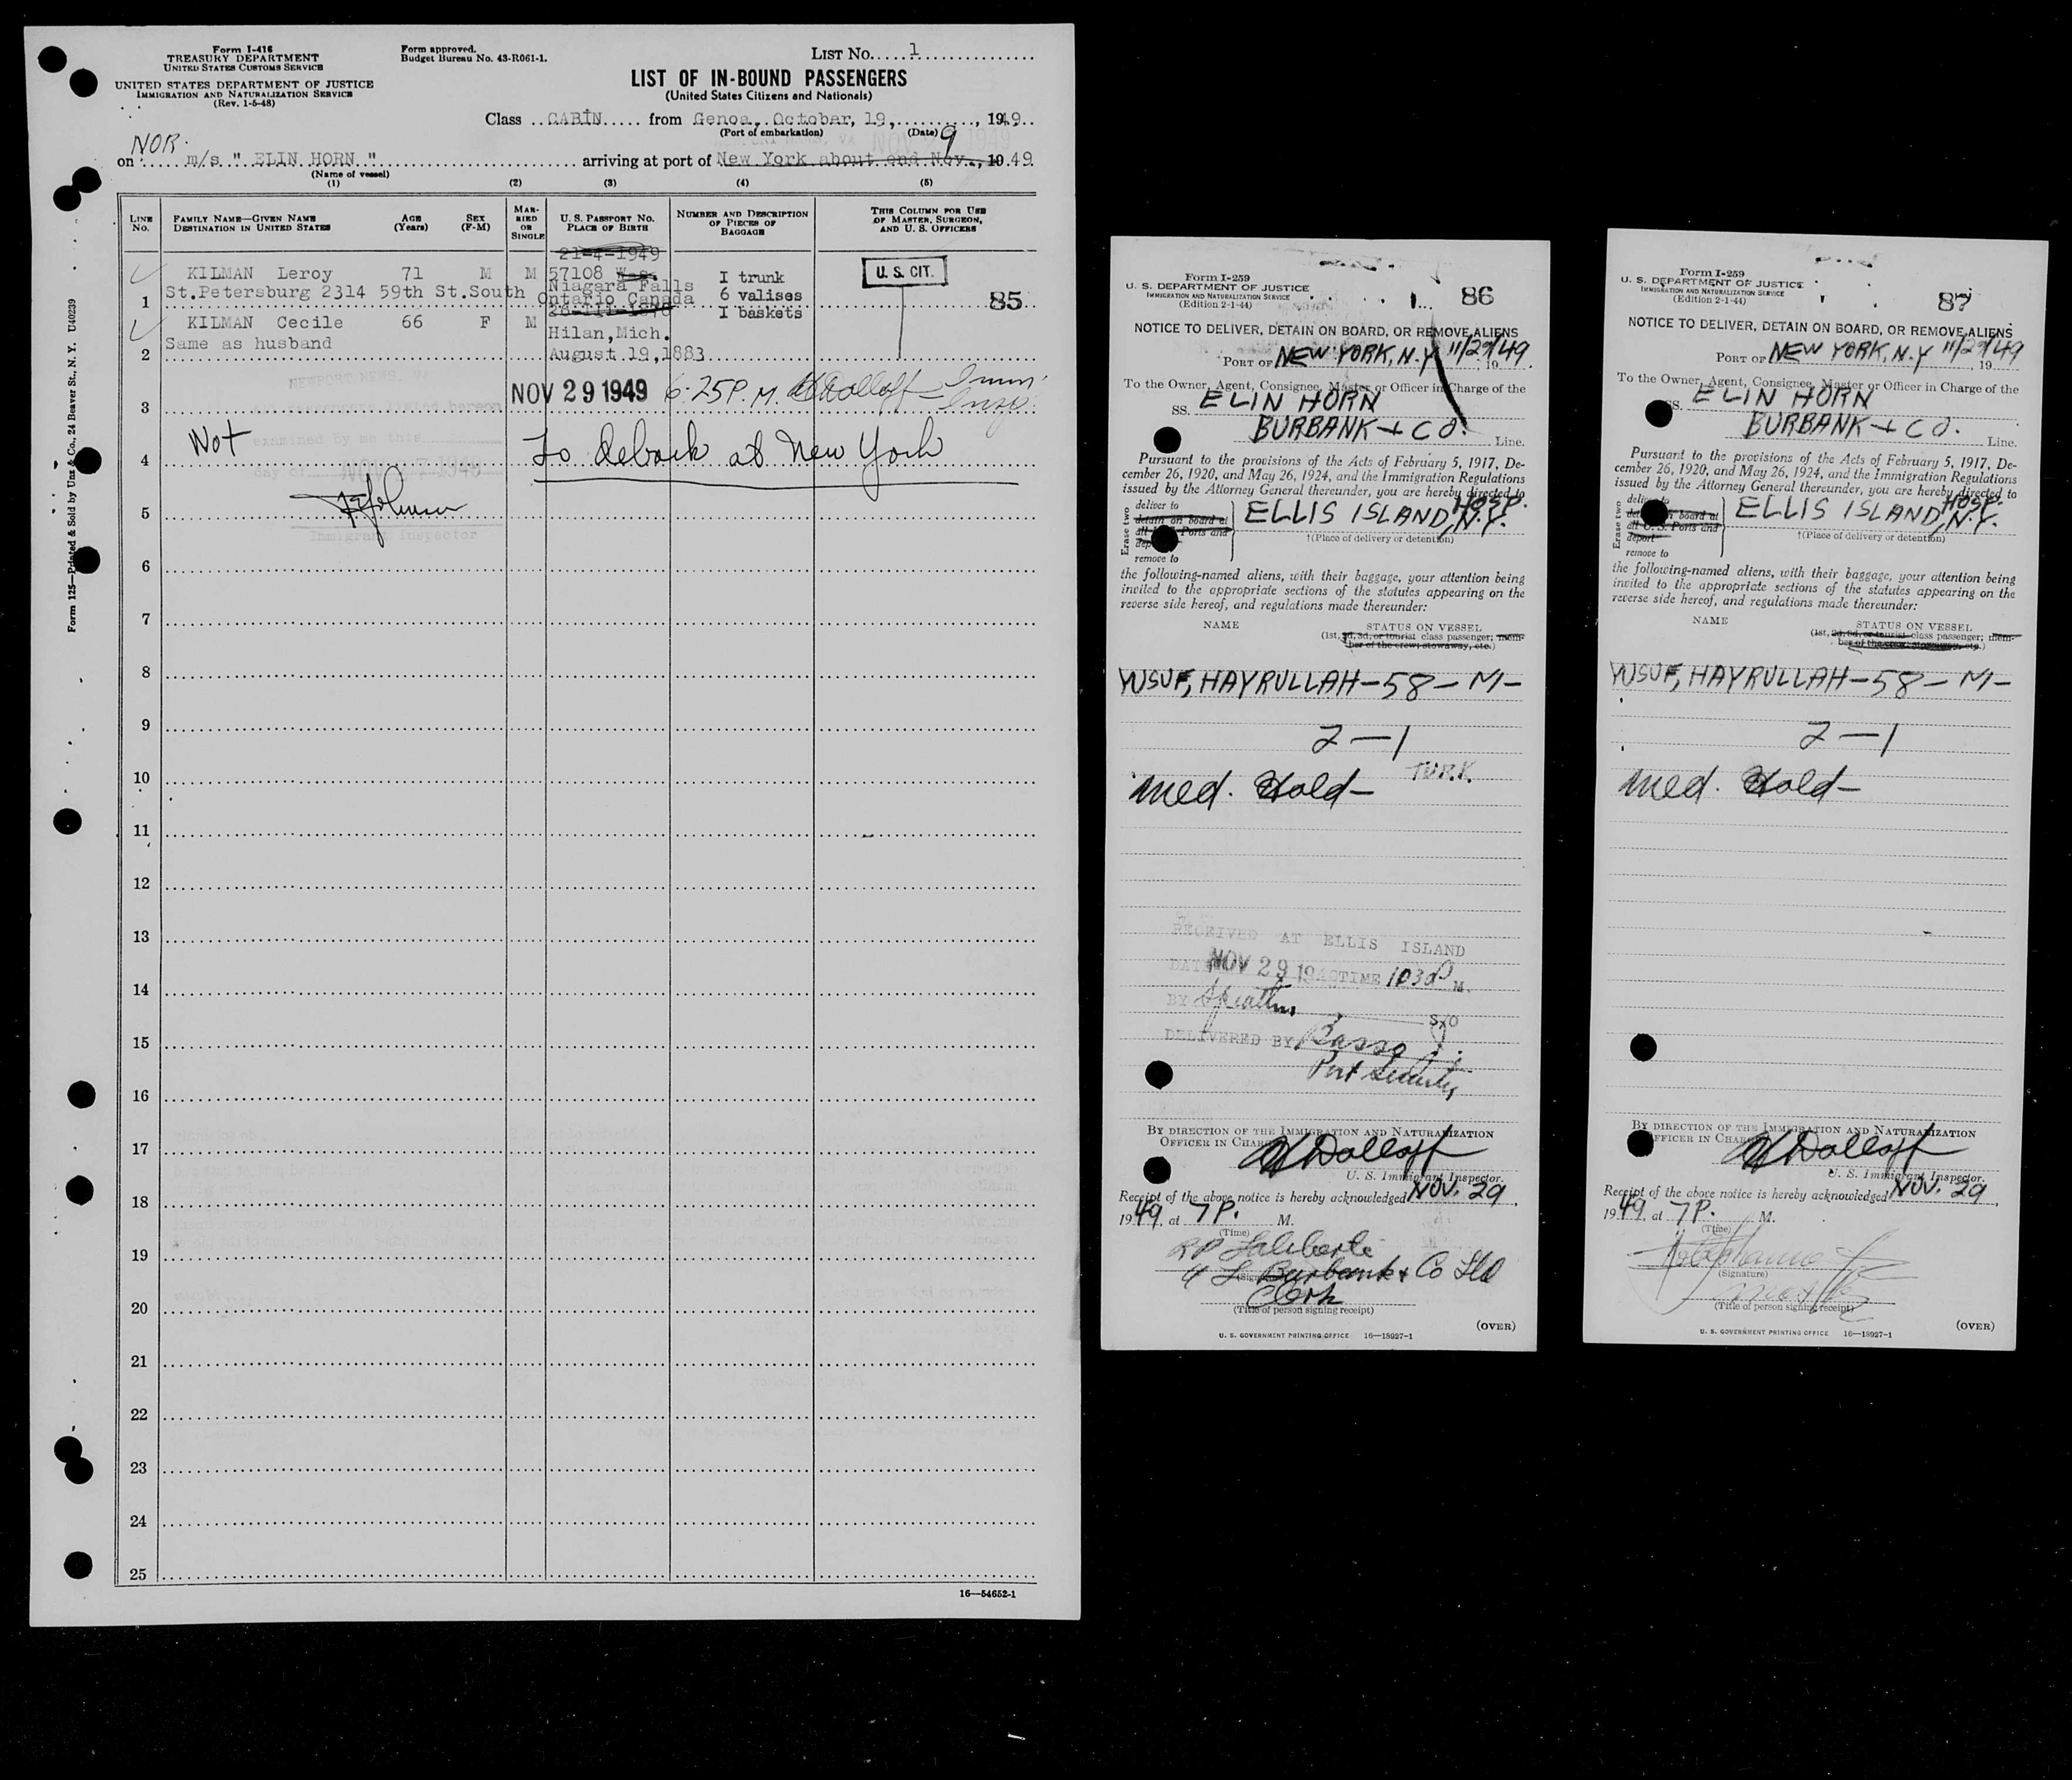 Form I-416
TREASURY DEPARTMENT
UNITED STATES CUSTOMS SERVICE
UNITED STATES DEPARTMENT OF JUSTICE
IMMIGRATION AND NATURALIZATION SERVICE
(Rev. 1-5-48)
Form approved.
Budget Bureau No. 43-R061-1.
LIST No. 1
LIST OF IN-BOUND PASSENGERS
(United States Citizens and Nationals)
Class CABIN from Genoa, October, 19, 1949
(Port of embarkation) (Date)
NOR.
on m/s " ELIN HORN " arriving at port of New York about end Nov., 1949
(Name of vessel)
(1) (2) (3) (4) (5)
LINE NO.
FAMILY NAME—GIVEN NAME
DESTINATION IN UNITED STATES
AGE (Years)
SEX (F-M)
MARRIED OR SINGLE
U. S. PASSPORT NO.
PLACE OF BIRTH
NUMBER AND DESCRIPTION OF PIECES OF BAGGAGE
THIS COLUMN FOR USE OF MASTER, SURGEON, AND U. S. OFFICERS
21-4-1949
KILMAN Leroy 71 M M 57108 I trunk U. S. CIT.
1 St.Petersburg 2314 59th St.South Niagara Falls Ontario Canada 6 valises 85
KILMAN Cecile 66 F M I baskets
2 Same as husband Hilan,Mich.
August 19,1883
NEWPORT NEWS, VA
3 NOV 29 1949 6:25P.M. Dolloff Imm. Insp.
4 Not examined by me this To debark at New York
day of NOV 27 1949
5
Immigrant Inspector
6
7
8
9
10
11
12
13
14
15
16
17
18
19
20
21
22
23
24
25
16—54652-1
Form 125—Printed & Sold by Unz & Co., 24 Beaver St., N. Y. U40239
Form I-259
U. S. DEPARTMENT OF JUSTICE
IMMIGRATION AND NATURALIZATION SERVICE
(Edition 2-1-44)
86
NOTICE TO DELIVER, DETAIN ON BOARD, OR REMOVE ALIENS
PORT OF NEW YORK, N.Y 11/29/49, 19
To the Owner, Agent, Consignee, Master or Officer in Charge of the
SS. ELIN HORN
BURBANK + CO. Line.
Pursuant to the provisions of the Acts of February 5, 1917, De-
cember 26, 1920, and May 26, 1924, and the Immigration Regulations
issued by the Attorney General thereunder, you are hereby directed to
Erase two
deliver to
detain on board at
all U. S. Ports and
deport
remove to
ELLIS ISLAND, HOSP. N.Y.
†(Place of delivery or detention)
the following-named aliens, with their baggage, your attention being
invited to the appropriate sections of the statutes appearing on the
reverse side hereof, and regulations made thereunder:
NAME STATUS ON VESSEL
(1st, 2d, 3d, or tourist class passenger; mem-
ber of the crew; stowaway, etc.)
YUSUF, HAYRULLAH—58—M—
2—1
TURK.
Med. Hold—
RECEIVED AT ELLIS ISLAND
DATE NOV 29 1949 TIME 1030 P M.
BY
DELIVERED BY Basso
Port Security
BY DIRECTION OF THE IMMIGRATION AND NATURALIZATION
OFFICER IN CHARGE
Dolloff
U. S. Immigrant Inspector.
Receipt of the above notice is hereby acknowledged NOV. 29,
1949, at 7P. M.
(Time)
Burbank & Co Ltd
(Signature)
Clerk
(Title of person signing receipt)
U. S. GOVERNMENT PRINTING OFFICE 16—18927-1
(OVER)
Form I-259
U. S. DEPARTMENT OF JUSTICE
IMMIGRATION AND NATURALIZATION SERVICE
(Edition 2-1-44)
87
NOTICE TO DELIVER, DETAIN ON BOARD, OR REMOVE ALIENS
PORT OF NEW YORK, N.Y 11/29/49, 19
To the Owner, Agent, Consignee, Master or Officer in Charge of the
SS. ELIN HORN
BURBANK + CO. Line.
Pursuant to the provisions of the Acts of February 5, 1917, De-
cember 26, 1920, and May 26, 1924, and the Immigration Regulations
issued by the Attorney General thereunder, you are hereby directed to
Erase two
deliver to
detain on board at
all U. S. Ports and
deport
remove to
ELLIS ISLAND, HOSP. N.Y.
†(Place of delivery or detention)
the following-named aliens, with their baggage, your attention being
invited to the appropriate sections of the statutes appearing on the
reverse side hereof, and regulations made thereunder:
NAME STATUS ON VESSEL
(1st, 2d, 3d, or tourist class passenger; mem-
ber of the crew; stowaway, etc.)
YUSUF, HAYRULLAH—58—M—
2—1
Med. Hold—
BY DIRECTION OF THE IMMIGRATION AND NATURALIZATION
OFFICER IN CHARGE
Dolloff
U. S. Immigrant Inspector.
Receipt of the above notice is hereby acknowledged NOV. 29,
1949, at 7P. M.
(Time)
(Signature)
(Title of person signing receipt)
U. S. GOVERNMENT PRINTING OFFICE 16—18927-1
(OVER)